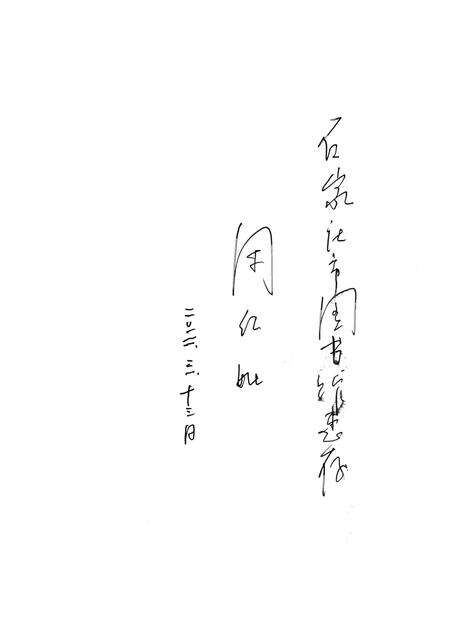 石家庄市图书馆惠存
周
二〇二二.三.十三日